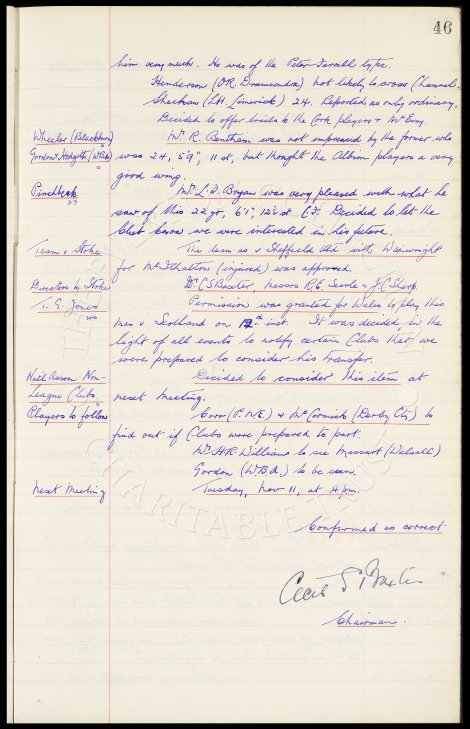 46
him very much. He was of the Peter Farrell type.
Henderson (O.R. Drumcondra) not likely to cross Channel.
Sheehan (L.H. Limerick) 24. Reported as only ordinary.
Decided to offer trials to the Cork players & McCroy.
Wheeler (Blackburn) Mr. R. Bentham was not impressed by the former who
Gordon & Hodgetts (W.B.A.) was 24, 5'9", 11 st, but thought the Albion players a very
good wing.
Pinchbeck Mr. L.J. Bryan was very pleased with what he
saw of this 22 yr, 6'1", 12½ st C.F. Decided to let the
Club know we were interested in his future.
Team v Stoke The team as v Sheffield Utd with Wainwright
for McIlhatton (injured) was approved.
Directors to Stoke Dr. C S Baxter, messrs R.E. Searle & J.C. Sharp.
T. G. Jones Permission was granted for Wales to play this
man v Scotland on 12th inst. It was decided, in the
light of all events to notify certain Clubs that we
were prepared to consider his transfer.
Natl Assocn Non- Decided to consider this item at
League Clubs next meeting.
Players to follow Corr (P.N.E.) & McCormick (Derby Cty) to
find out if Clubs were prepared to part.
Mr. H.R. Williams to see Massart (Walsall)
Gordon (W.B.A.) to be seen.
Next Meeting Tuesday, Nov 11, at 4 pm.
Confirmed as correct
Cecil S Baxter
Chairman.
CHARITABLE TRUST